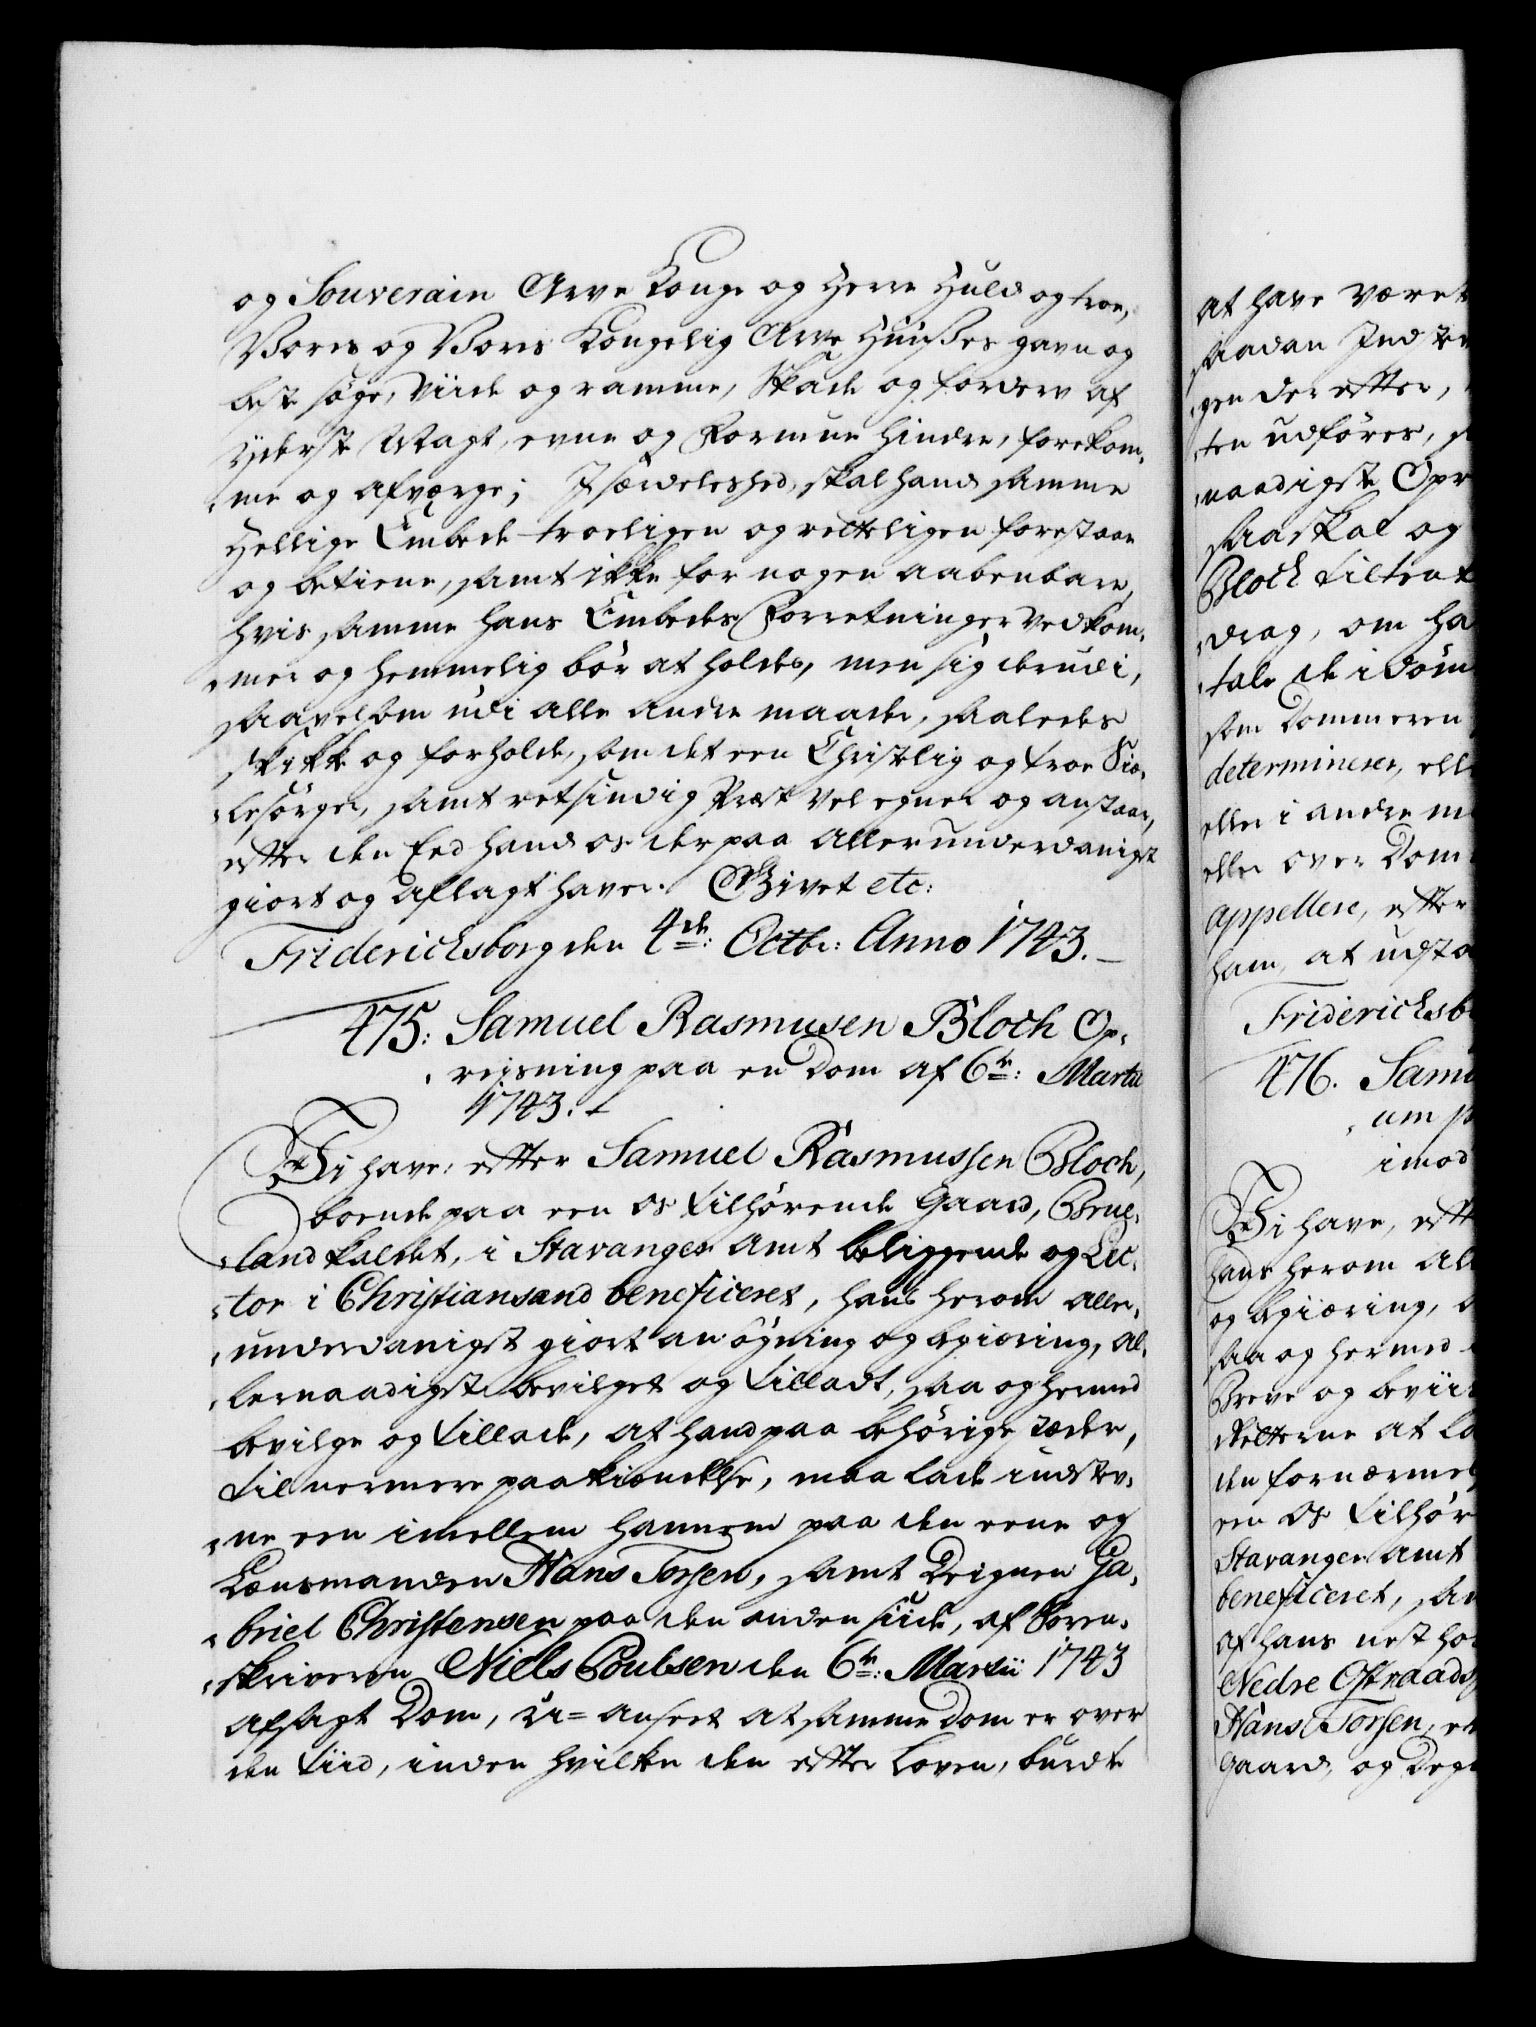 og Souverain Arve Konge og Herre Huld og troe,
Vores og Vores Kongelig Arve Huuses gavn og
beste søge, viide og ramme, Skade og forderv af
yderste Magt, evne og Formue hindre, forekom-
me og afværge; Iserdeleshed, skal hand samme
Hellige Embede troeligen og retteligen forestaae
og betiene, samt ikke for nogen aabenbare,
hvis samme hans Embedes Forretninger vedkom-
mer og hemmelig bør at holdes, men sig derudi,
saavelsom udi alle andre maade, saaledes
skikke og forholde, som det een Christelig og troe Siæ-
lesørger, samt retsindig Præst vel egner og anstaar,
efter den Eed hand os derpaa allerunderdanigst
giort og aflagt haver. Givet etc:
Friderichsborg den 4de: Octbr: Anno 1743.
475: Samuel Rasmusen Bloch Op-
reisning paa en Dom af 6te: Martii
1743.
Vi have, efter Samuel Rasmussen Bloch,
boende paa een Os tilhørende Gaard, Brue-
land kaldet, i Stavanger Amt beliggende og Lec-
tor i Christiansand beneficeret, hans herom aller-
underdanigst giort ansøgning og begiering, al-
lernaadigst bevilget og tilladt, saa og hermed
bevilge og tillade, at hand paa behørige stæder,
til nermere paakiendelse, maa lade indstev-
ne een imellem hannem paa den eene og
Lænsmanden Hans Torsen, samt Deignen Ga-
briel Christensen paa den anden siide, af Soren-
skriveren Niels Poulsen den 6te: Martii 1743
afsagt Dom, u-anseet at samme Dom er over
den tiid, inden hvilken den efter Loven, burdte
at have været
saadan Ind
gen derefter,
ten udføres,
naadigste Opr
saa skal og
Bloch tiltræ
drag, om ha
tale de idøm
som Dommeren
determinerer, elle
eller i andre m
eller over Dom
appellere, efter
ham, at udsta
Friderichsb
476. Samu
um p
imod
Vi have, eft
hans herom al
og begiæring, b
saa og hermed
Breve og beviis
Retterne at la
den fornærmel
een Os tilhør
Stavanger Amt
beneficeret, sa
af hans nest ho
Nedre Ostraads
Hans Torsen, e
gaard, og Deg